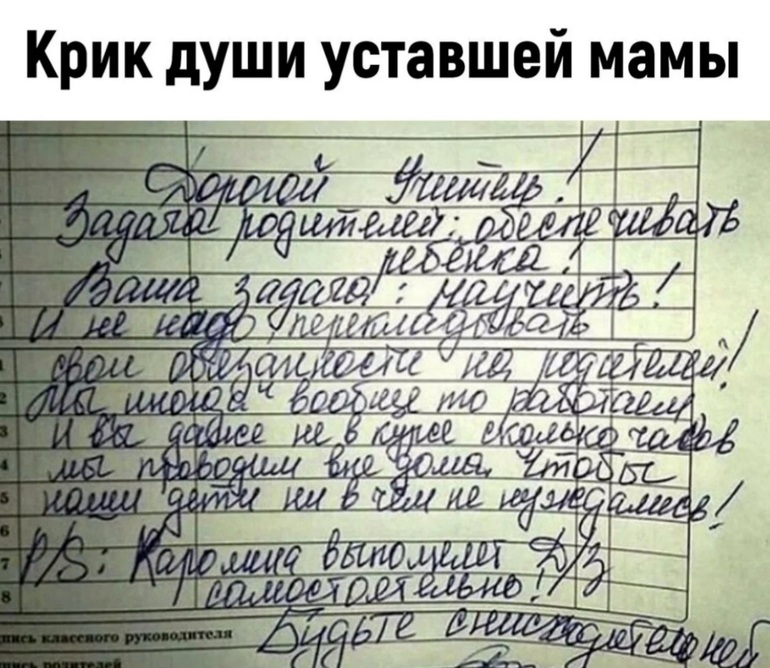 Крик души уставшей мамы
Дорогой Учитель!
Задача родителей: обеспечивать
ребёнка!
Ваша задача: научить!
И не надо перекладовать
свои обезанности на родителей!
Мы "иногда" вообще то работаем
И вы даже не в курсе сколько часов
мы проводим вне дома, чтобы
наши дети ни в чём не нуждались!
P/S: Каролина выполняет Д/З
самостоятельно!
Будьте снисходительней
пись классного руководителя
пись родителей
1
2
3
4
5
6
7
8